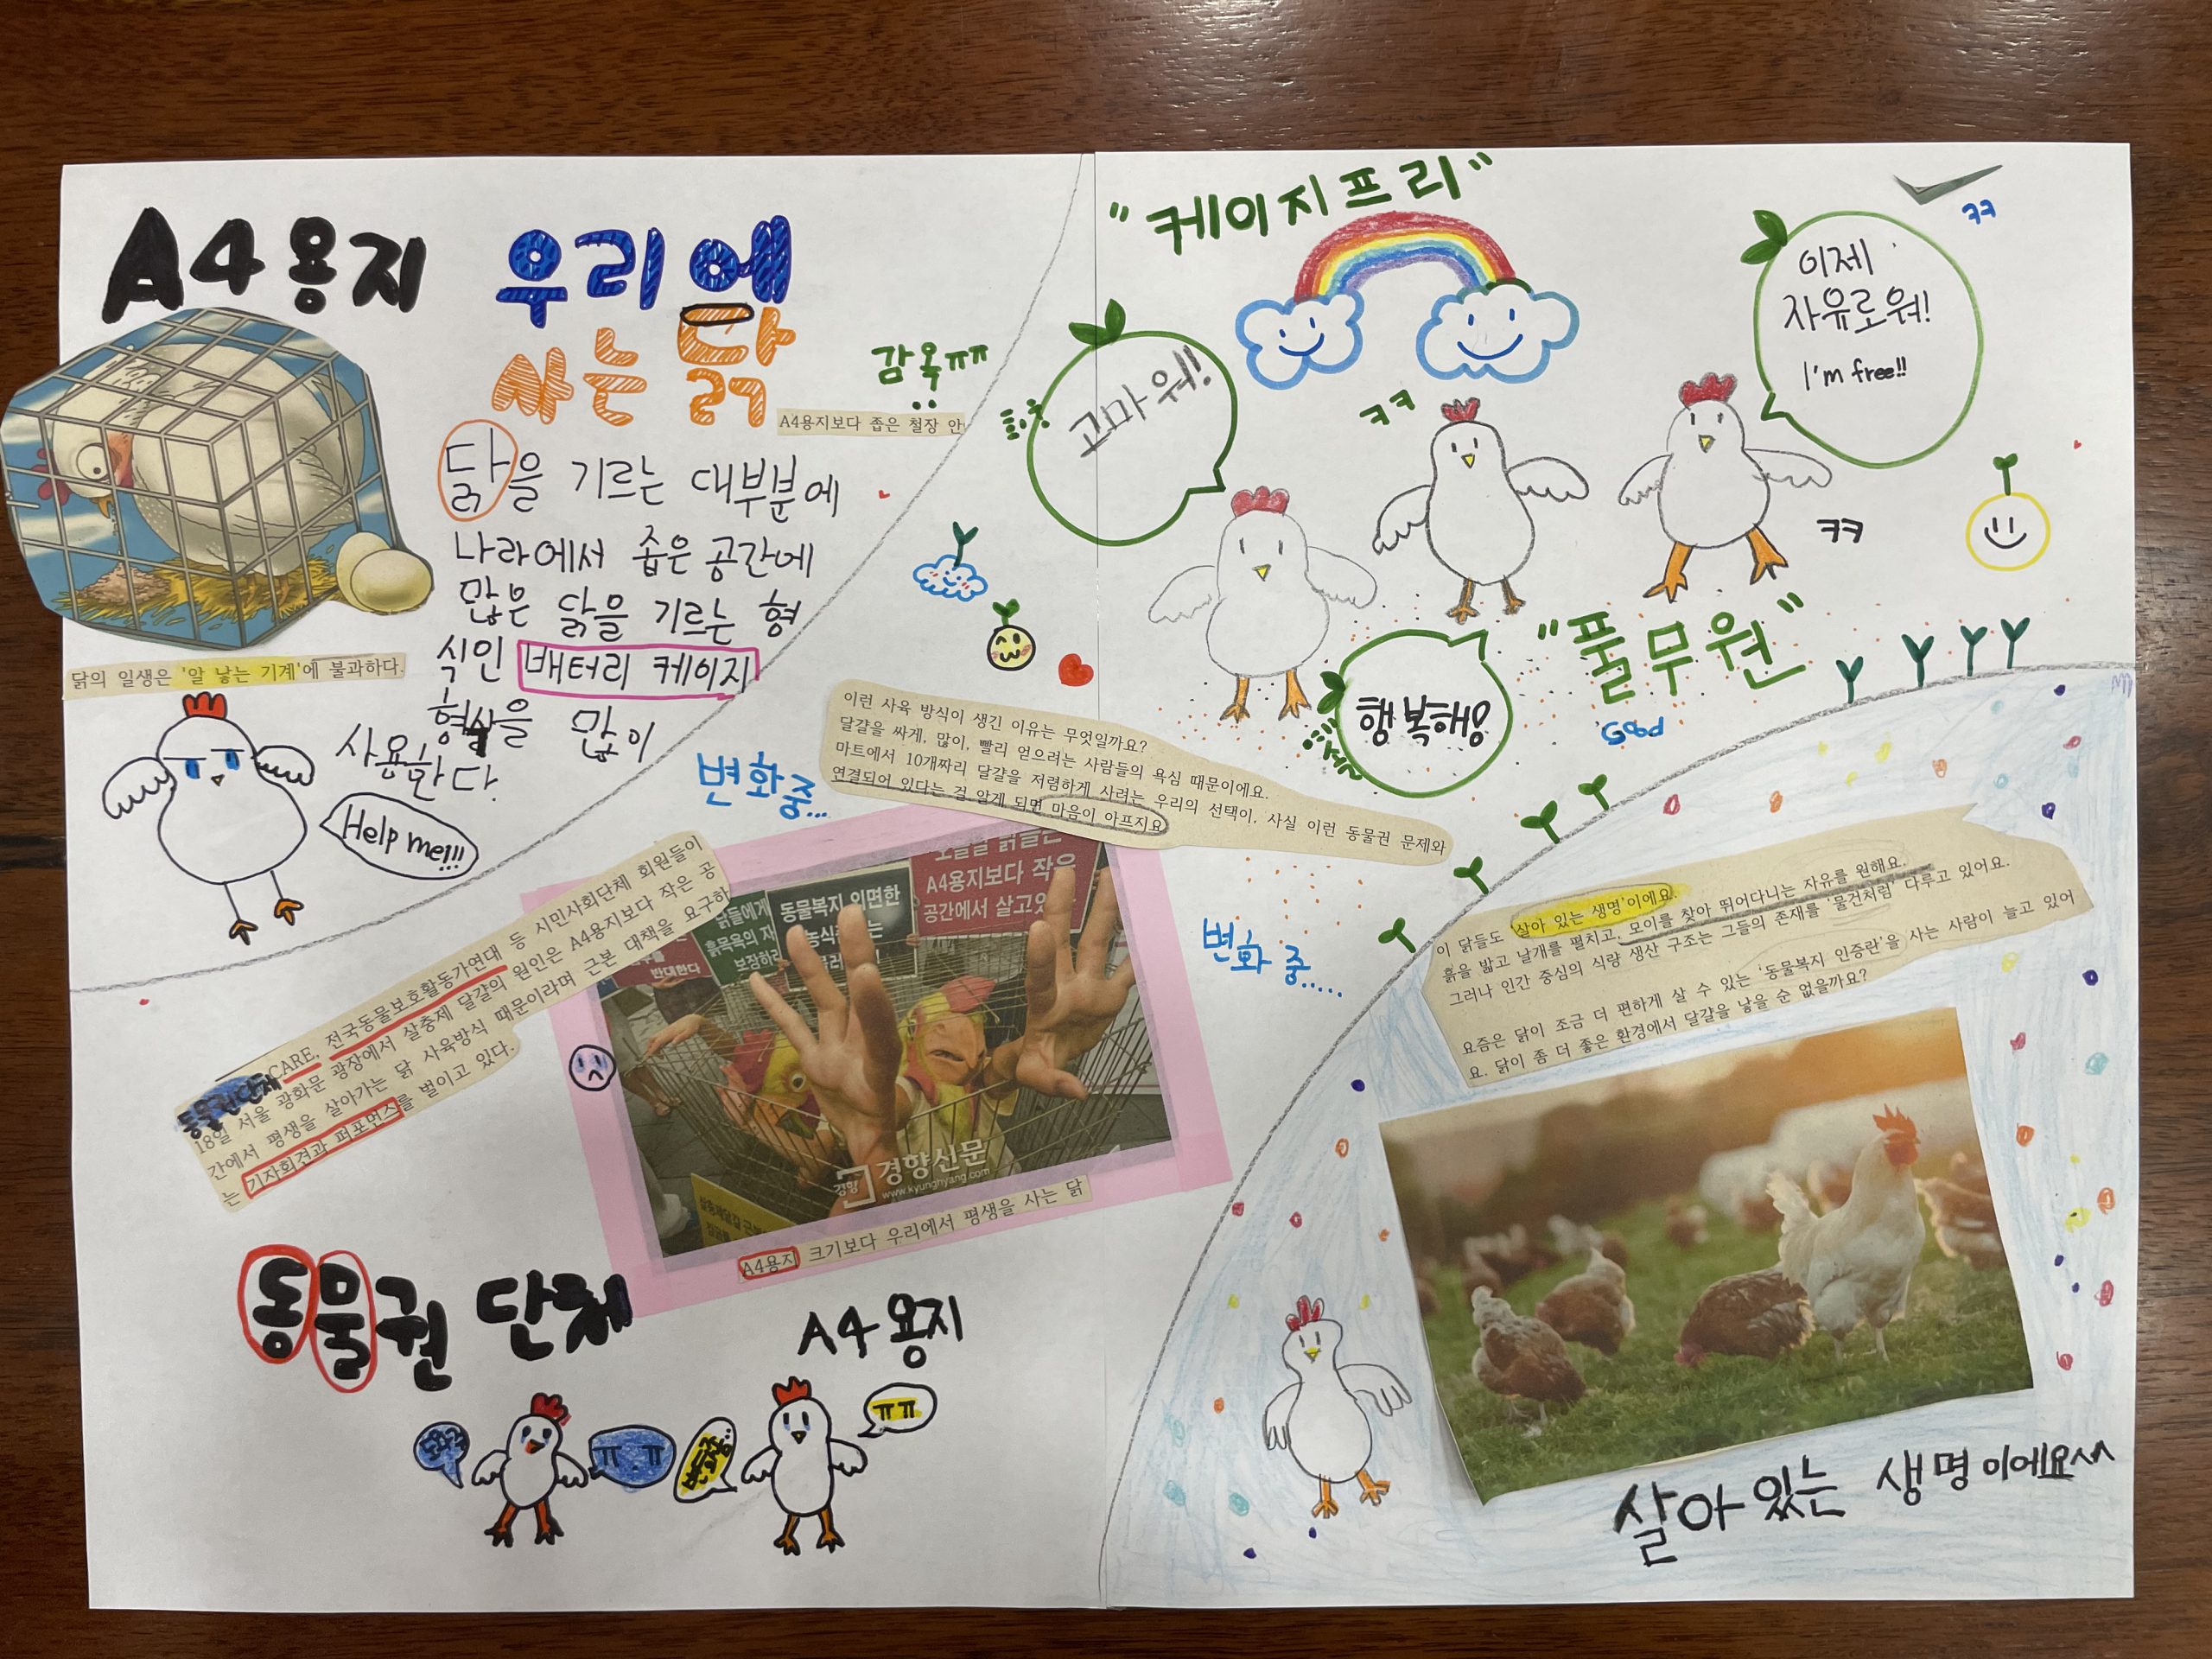 A4용지 우리에
사는 닭
감옥ㅠㅠ
A4용지보다 좁은 철장 안
닭을 기르는 대부분에
나라에서 좁은 공간에
많은 닭을 기르는 형
식인 배터리 케이지
형상을 많이
사용한다.
닭의 일생은 '알 낳는 기계'에 불과하다.
Help me!!!
"케이지프리"
고마워!!
이제
자유로워!
I'm free!!
ㅋㅋ
ㅋㅋ
ㅋㅋ
"풀무원"
행복해!
변화중...
이런 사육 방식이 생긴 이유는 무엇일까요?
달걀을 싸게, 많이, 빨리 얻으려는 사람들의 욕심 때문이에요.
마트에서 10개짜리 달걀을 저렴하게 사려는 우리의 선택이, 사실 이런 동물권 문제와
연결되어 있다는 걸 알게 되면 마음이 아프지요
변화 중.....
동물권단체 CARE, 전국동물보호활동가연대 등 시민사회단체 회원들이
18일 서울 광화문 광장에서 살충제 달걀의 원인은 A4용지보다 작은 공
간에서 평생을 살아가는 닭 사육방식 때문이라며 근본 대책을 요구하
는 기자회견과 퍼포먼스를 벌이고 있다.
닭들에게
흙목욕의 자
보장하라
반대한다
동물복지 외면한
A4용지보다 작은
공간에서 살고있
경향신문
www.kyunghyang.com
A4용지 크기보다 우리에서 평생을 사는 닭
동물권 단체
A4용지
ㅠㅠ
ㅠㅠ
이 닭들도 '살아 있는 생명'이에요.
흙을 밟고 날개를 펼치고, 모이를 찾아 뛰어다니는 자유를 원해요.
그러나 인간 중심의 식량 생산 구조는 그들의 존재를 '물건처럼' 다루고 있어요.
요즘은 닭이 조금 더 편하게 살 수 있는 '동물복지 인증란'을 사는 사람이 늘고 있어
요. 닭이 좀 더 좋은 환경에서 달걀을 낳을 순 없을까요?
살아있는 생명이에요